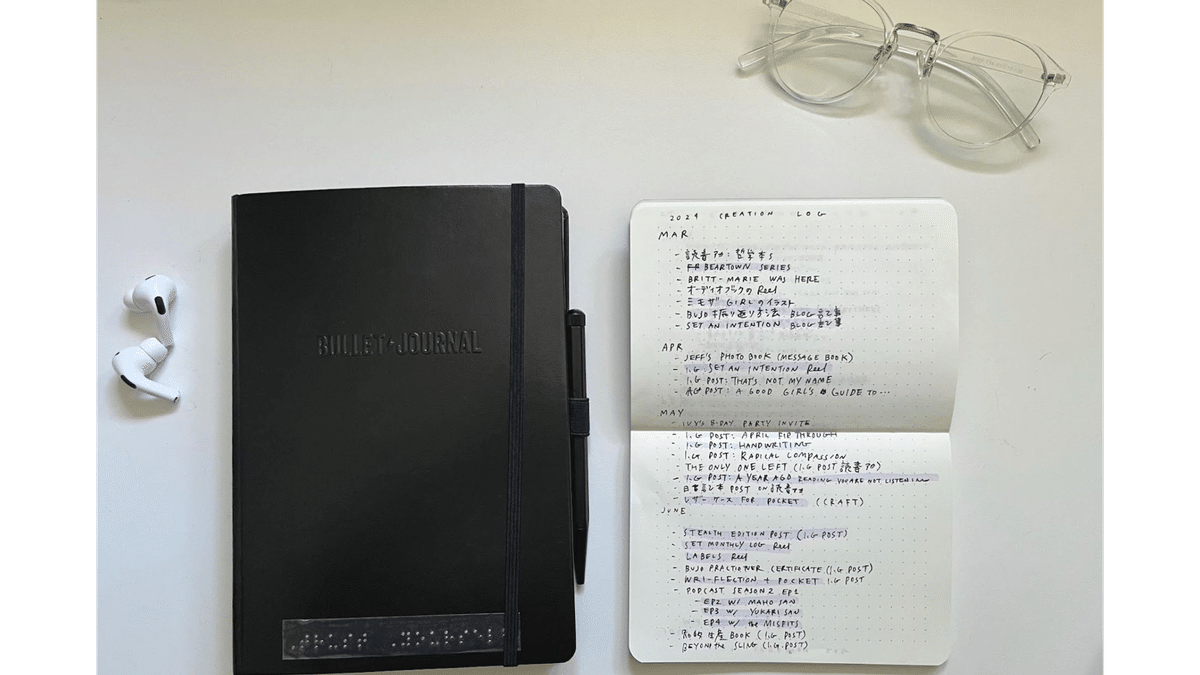 BULLET JOURNAL
2024 CREATION LOG
MAR
- 読書ノート: 哲学本
- FR BEARTOWN SERIES
- BRITT-MARIE WAS HERE
- オーディオブックの Reel
- ミモザ GIRLのイラスト
- BUJO 振り返り方法 BLOG 記事
- SET AN INTENTION BLOG 記事
APR
- JEFF'S PHOTO BOOK (MESSAGE BOOK)
- I.G SET AN INTENTION Reel
- I.G POST: THAT'S NOT MY NAME
- POST: A GOOD GIRL'S GUIDE TO ...
MAY
- IVY'S B-DAY PARTY INVITE
- I.G POST: APRIL FLIP THROUGH
- I.G POST: HANDWRITING
- I.G POST: RADICAL COMPASSION
- THE ONLY ONE LEFT (I.G POST 読書ノート)
- I.G POST: A YEAR AGO READING YOU ARE NOT LISTENING
- POST ON 読書ノート
- レザーケース FOR POCKET (CRAFT)
JUNE
- STEALTH EDITION POST (I.G POST)
- SET MONTHLY LOG Reel
- LABELS Reel
- BUJO PRACTIONER CERTIFICATE (I.G POST)
- WRI-FLECTION + POCKET I.G POST
- PODCAST SEASON 2 EP1
- EP2 W/ MAHO SAN
- EP3 W/ YUKARI SAN
- EP4 W/ the MISFITS
- 知的生産 BOOK (I.G. POST)
- BEYOND the SLING (I.G. POST)